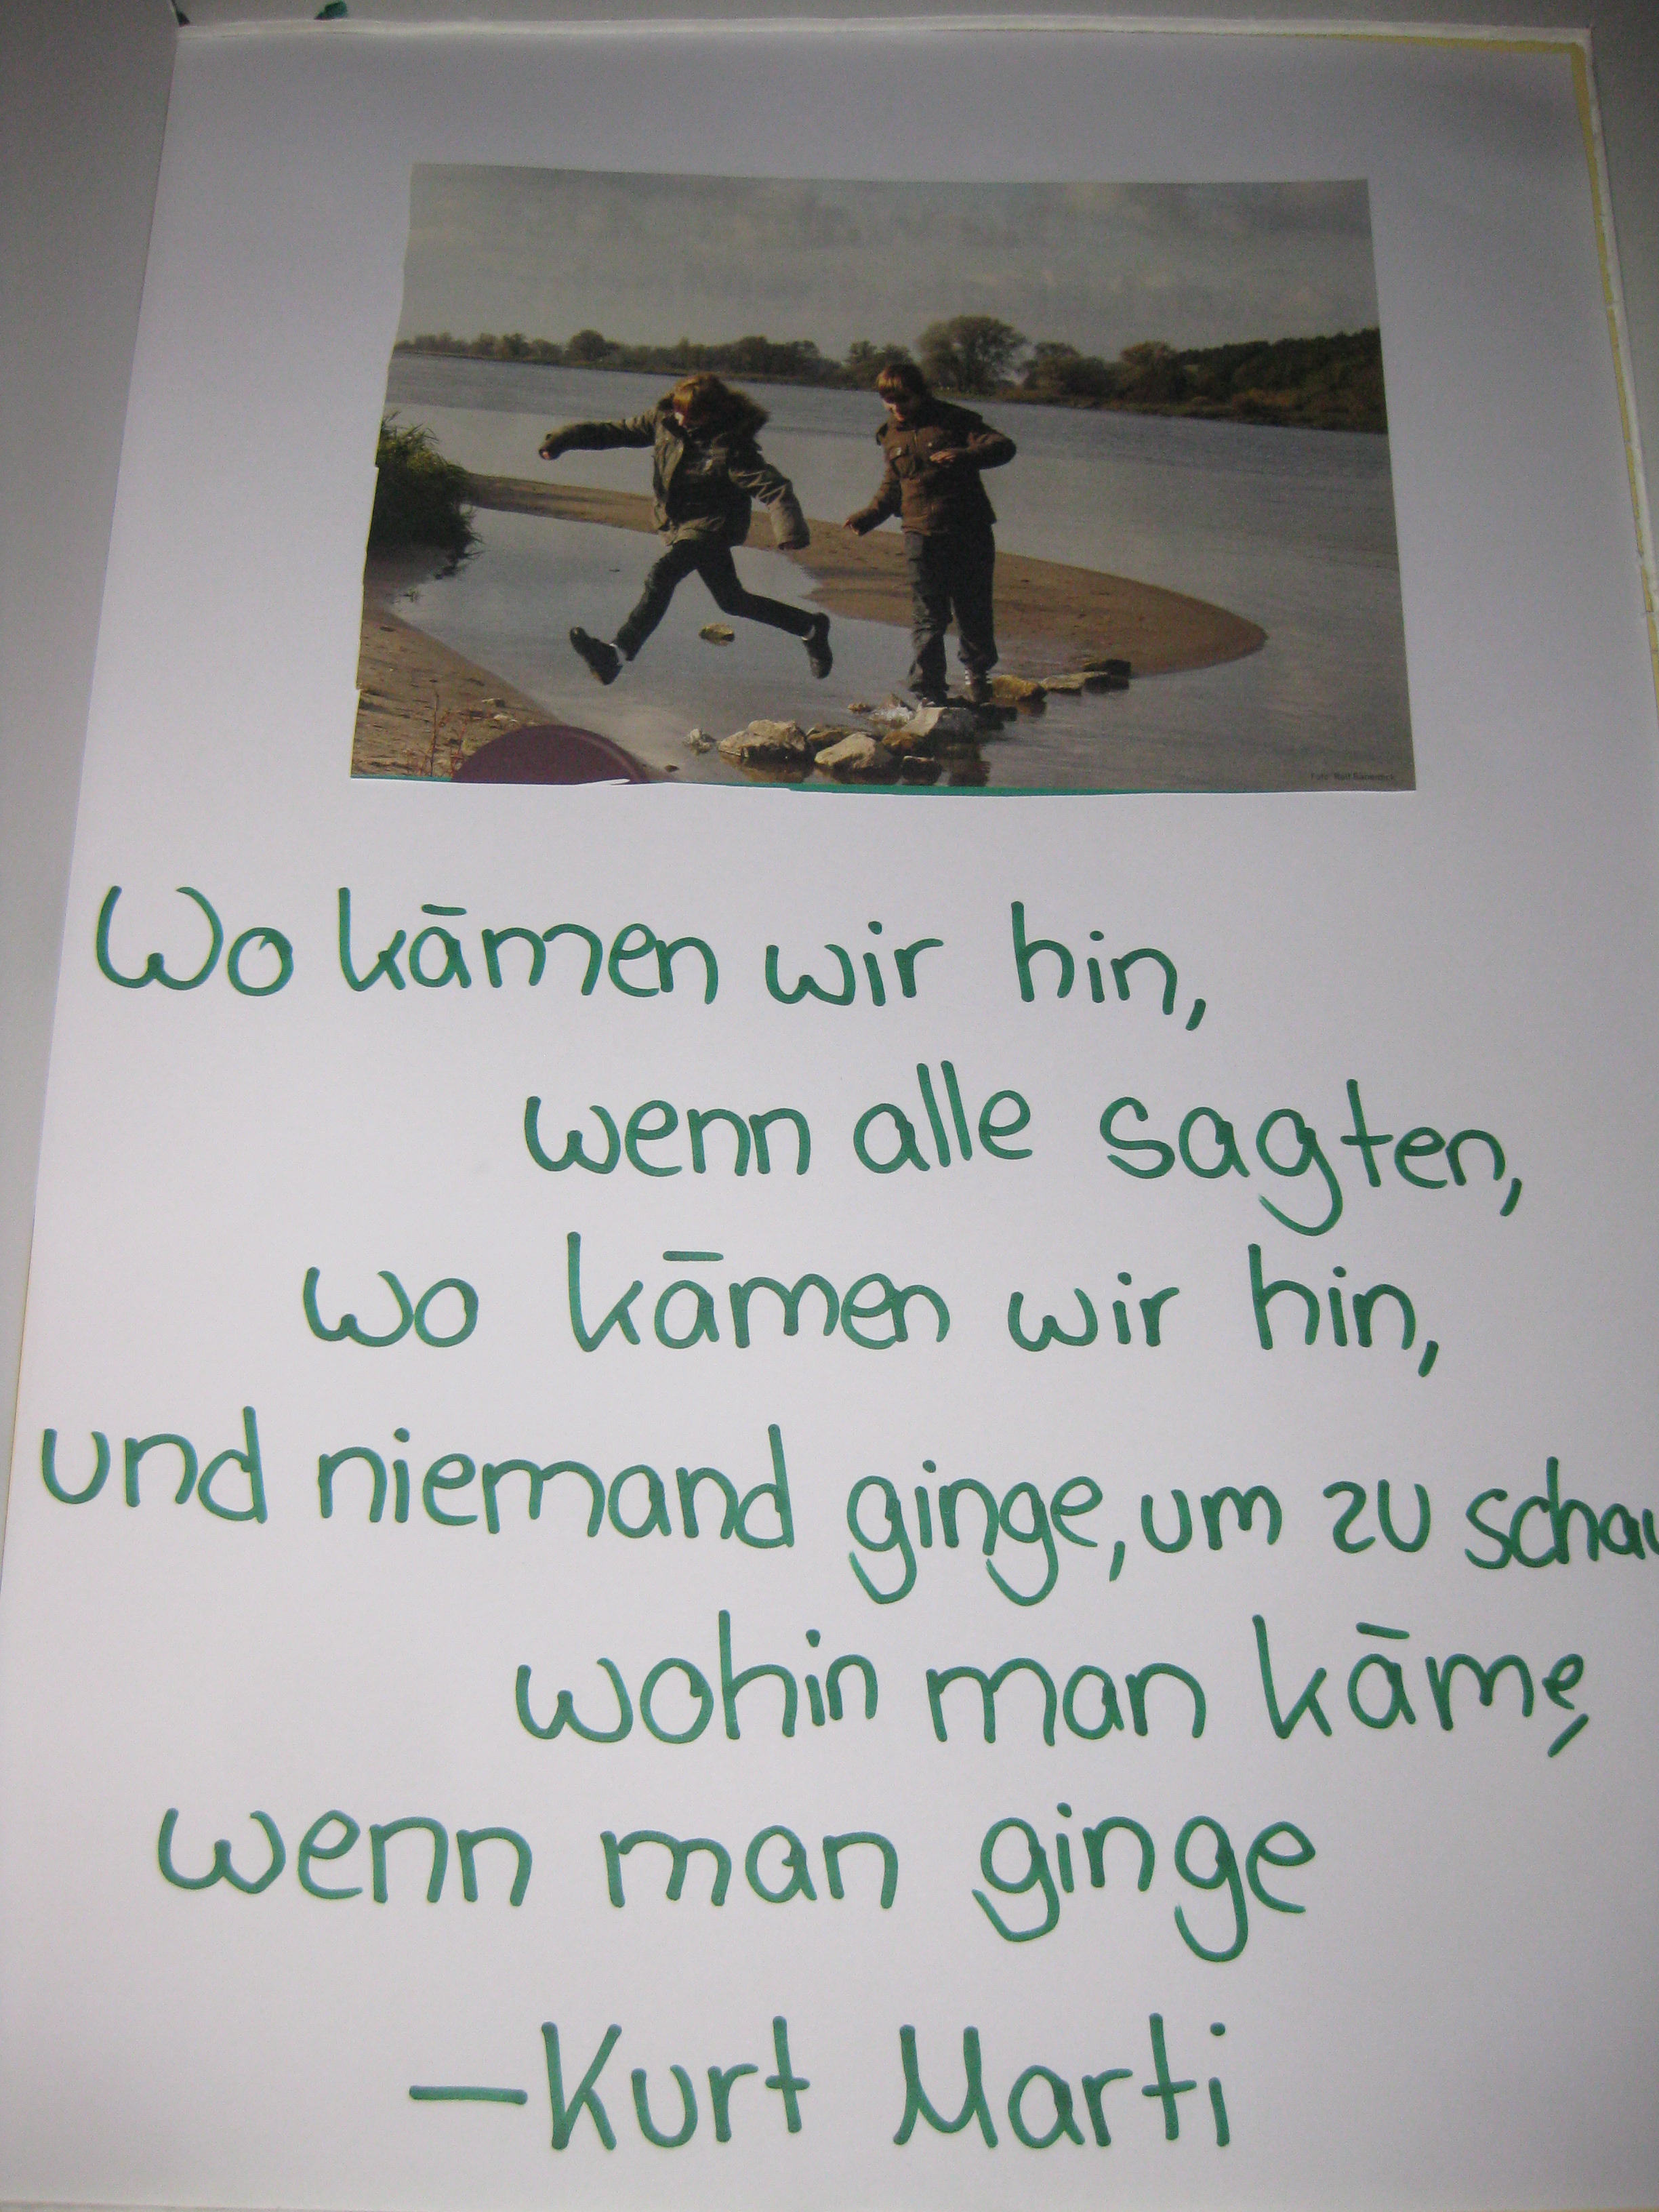 Wo kämen wir hin,
wenn alle sagten,
wo kämen wir hin,
und niemand ginge, um zu schau
wohin man käme,
wenn man ginge
— Kurt Marti